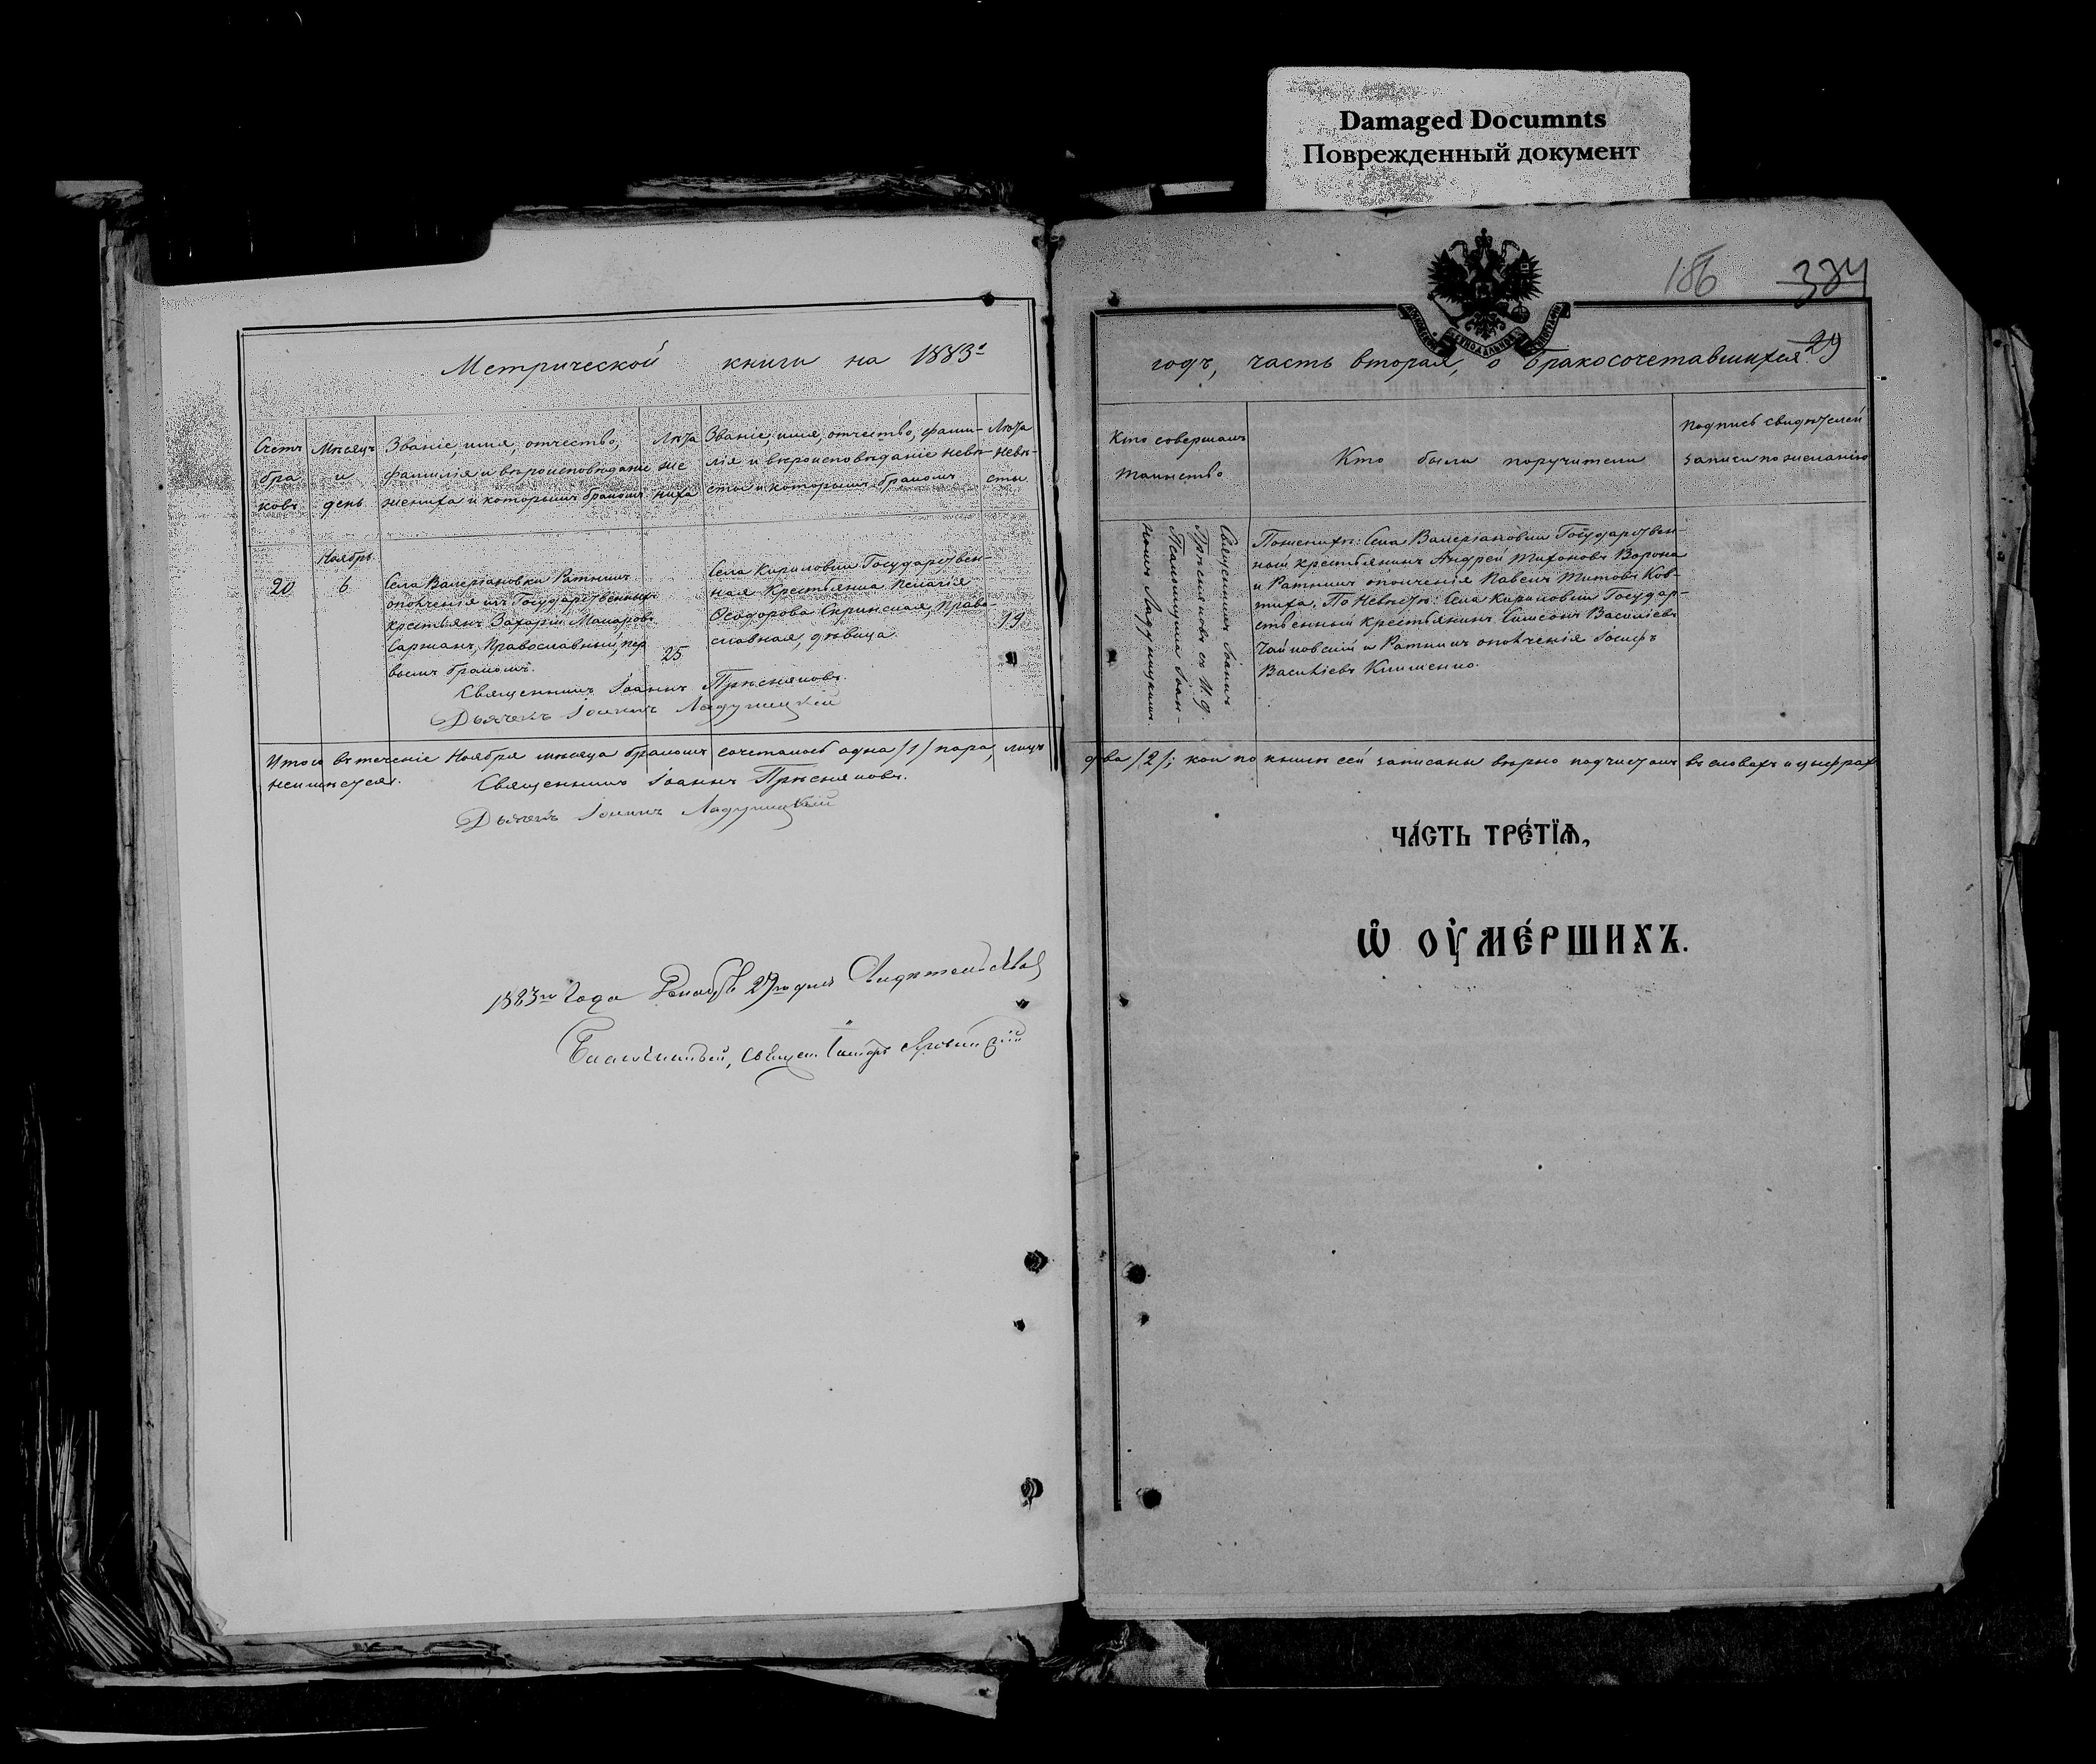 Damaged Documnts
Поврежденный документ
186 384
29
Метрической книги на 1883й
годъ, часть вторая, о бракосочетавшихся.
Счетъ
бра
ковъ
Мѣсяцъ
и
день
Званіе, имя, отчество,
фамилія и вѣроисповѣданіе
жениха и которымъ бракомъ
Лѣта
же
ниха
Званіе, имя, отчество, фами-
лія и вѣроисповѣданіе невѣ-
сты и которымъ бракомъ
Лѣта
невѣ-
сты
Кто совершалъ
таинство
Кто были поручители
Подпись свидѣтелей
записи по желанію
20
Ноябрь
6
Села Валеріановки Ратникъ
ополченія изъ Государственныхъ
крестьянъ Захарій Макаровъ
Саржанъ, Православный, пер
вымъ бракомъ.
25
Села Кириловки Государствен-
ная крестьянка Пелагія
Ѳеодорова Скринская, Право-
славная, дѣвица.
19
Священникъ Іоаннъ Прѣсняковъ.
Дьячекъ Іоаннъ Ладуницкій
Священникъ Іоаннъ
Прѣсняковъ съ И. д.
Псаломщика Іоан-
номъ Ладуницкимъ.
По женихѣ: Села Валеріановки Государствен-
ный крестьянинъ Андрей Тихоновъ Ворона
и Ратникъ ополченія Павелъ Титовъ Ков-
тиха. По Невѣстѣ: Села Кириловки Государ-
ственный крестьянинъ Симеонъ Василіевъ
Чайковскій и Ратникъ ополченія Іосифъ
Василіевъ Клименко.
Итого въ теченіе Ноября мѣсяца бракомъ сочеталось одна /1/ пара, лицъ
два /2/; кои по книгѣ сей записаны вѣрно подчистокъ въ словахъ и цыфрахъ
неимѣется.
Священникъ Іоаннъ Прѣсняковъ.
Дьячекъ Іоаннъ Ладуницкій
1883го Года Декабря 29го дня Свидѣтельствовалъ
Благочинный, Священ.
ЧА́СТЬ ТРЕ́ТЇѦ,
Ѡ ОУМЕ́РШИХЪ.